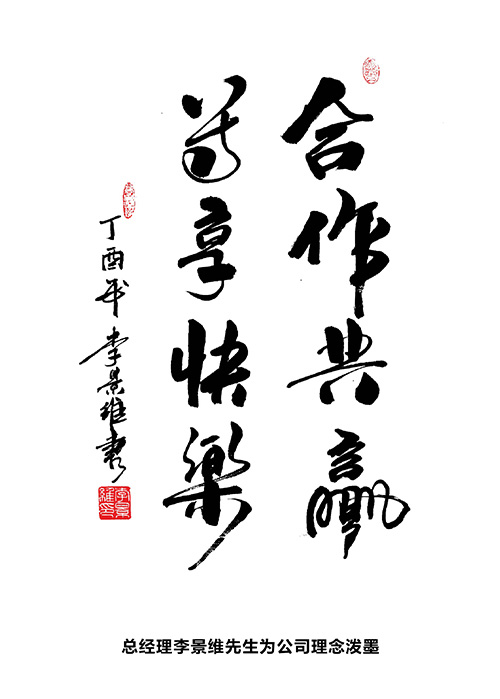 合作共赢
尊享快樂
丁酉年 李景维書
李景維印
总经理李景维先生为公司理念泼墨